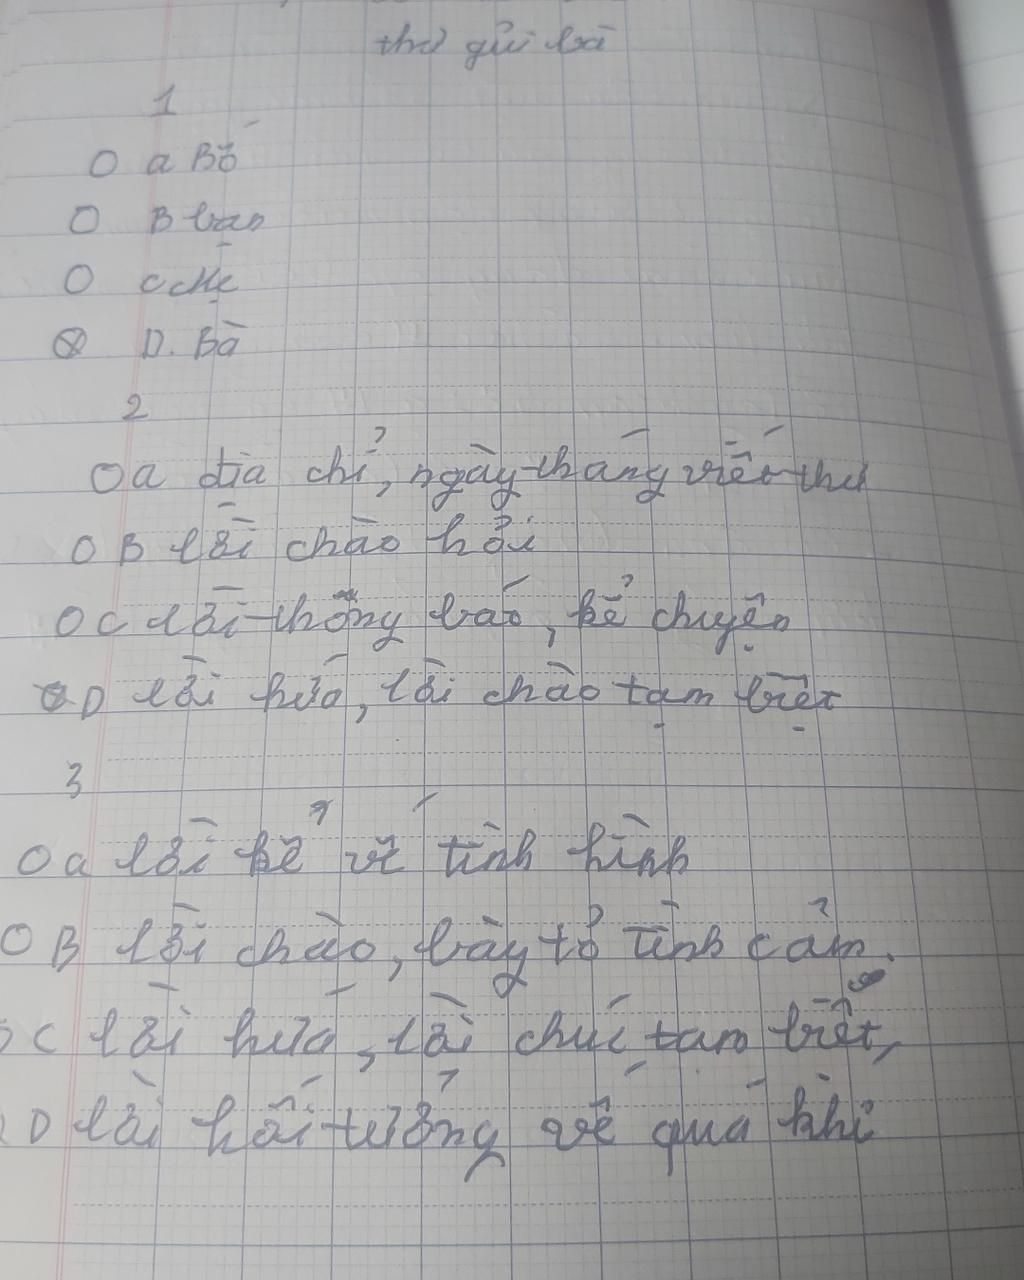 thư gửi bà
1
O a Bố
O B bạn
O c chị
⊗ D. Bà
2
O a địa chỉ, ngày tháng viết thư
O B lời chào hỏi
O C lời thông báo, kể chuyện
⊗ D lời hứa, lời chào tạm biệt
3
O a lời kể về tình hình
O B lời chào, bày tỏ tình cảm.
O C lời hứa, lời chúc tạm biệt,
D lời hồi tưởng về quá khứ